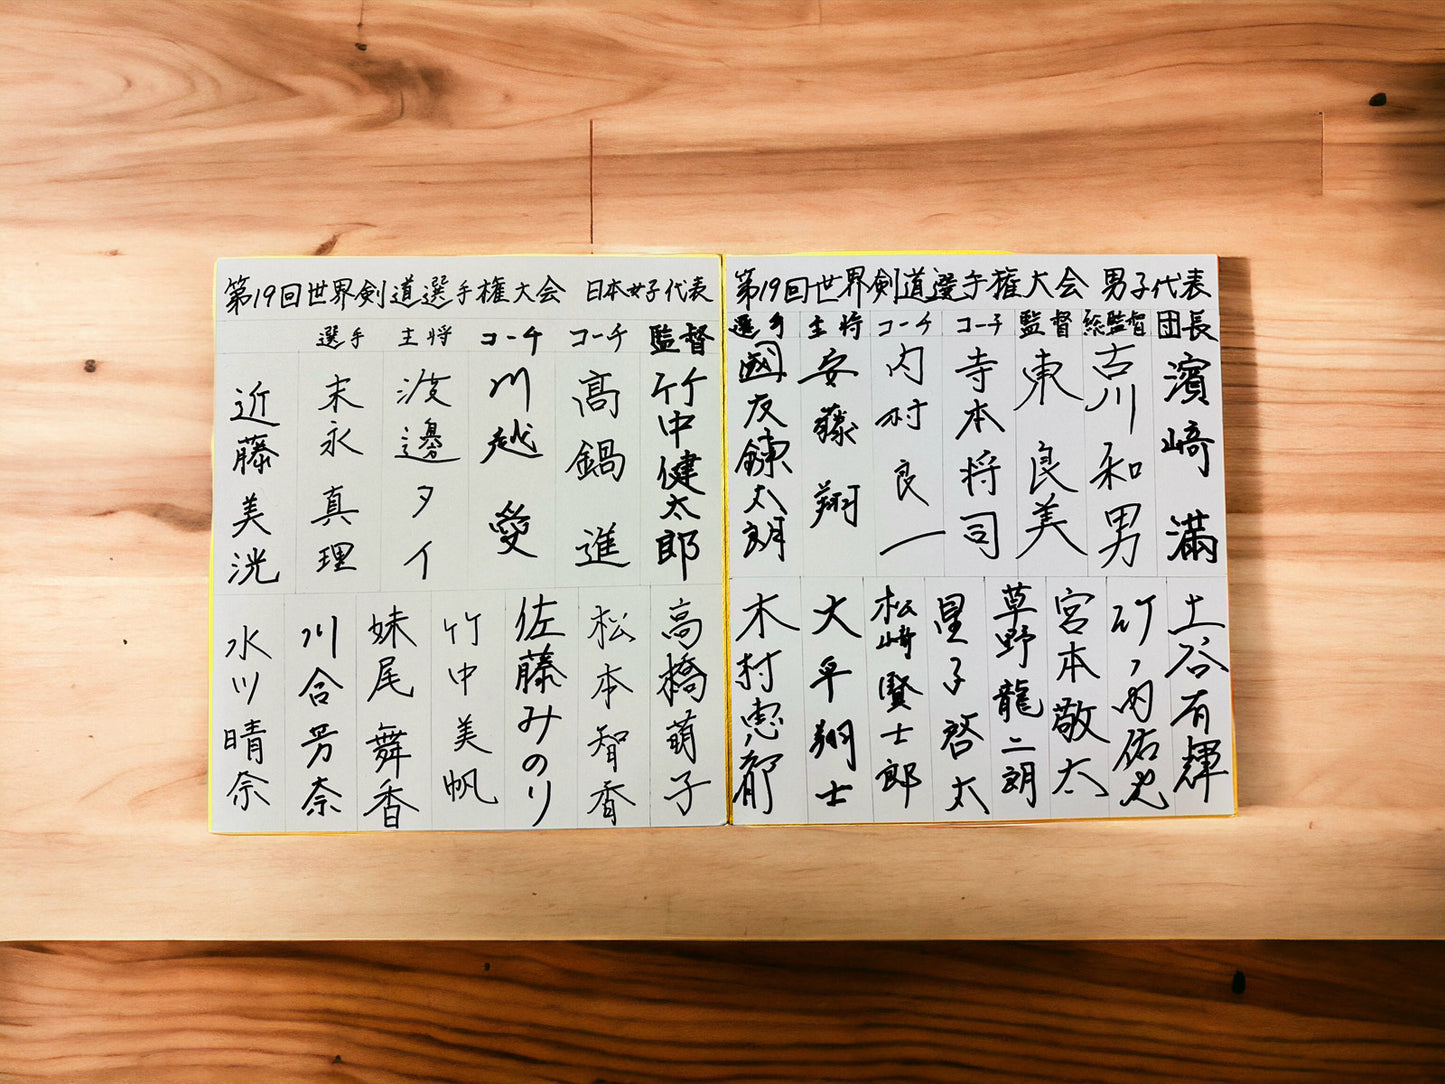 第19回世界剣道選手権大会 男子代表
団長
濱﨑 満
総監督
古川和男
監督
東 良美
コーチ
寺本将司
コーチ
内村良一
主将
安藤 翔
選手
國友鍊太朗
土谷有輝
竹ノ内佑也
宮本敬太
草野龍二朗
星子啓太
松﨑賢士郎
大平翔士
木村恵都
第19回世界剣道選手権大会 日本女子代表
監督
竹中健太郎
コーチ
高鍋 進
コーチ
川越 愛
主将
渡邊タイ
選手
末永真理
近藤美洸
高橋萌子
松本智香
佐藤みのり
竹中美帆
妹尾舞香
川合芳奈
水川晴奈